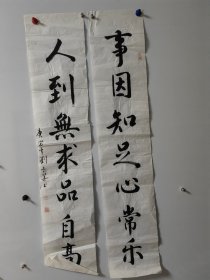 事因知足心常乐
人到無求品自高